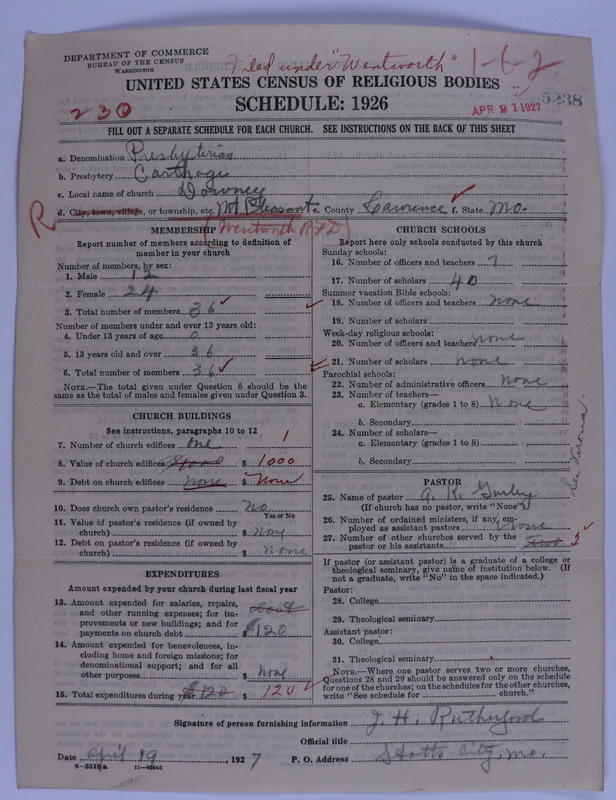 DEPARTMENT OF COMMERCE
BUREAU OF THE CENSUS
WASHINGTON
Filed under "Wentworth" 1-6-2
UNITED STATES CENSUS OF RELIGIOUS BODIES
SCHEDULE: 1926
230
APR 21 1927
5238
FILL OUT A SEPARATE SCHEDULE FOR EACH CHURCH. SEE INSTRUCTIONS ON THE BACK OF THIS SHEET
a. Denomination Presbyterian
b. Presbytery Carthage
c. Local name of church Downey
R d. City, town, village, or township, etc. Mt Pleasant e. County Lawrence f. State Mo.
Wentworth RFD
MEMBERSHIP
Report number of members according to definition of
member in your church
Number of members, by sex:
1. Male 12
2. Female 24
3. Total number of members 36
Number of members under and over 13 years old:
4. Under 13 years of age 0
5. 13 years old and over 36
6. Total number of members 36
NOTE.—The total given under Question 6 should be the
same as the total of males and females given under Question 3.
CHURCH BUILDINGS
See instructions, paragraphs 10 to 12
7. Number of church edifices one 1
8. Value of church edifices $1000 $ 1000
9. Debt on church edifices none $ None
10. Does church own pastor's residence? No
Yes or No
11. Value of pastor's residence (if owned by
church) $ None
12. Debt on pastor's residence (if owned by
church) $ None
EXPENDITURES
Amount expended by your church during last fiscal year
13. Amount expended for salaries, repairs,
and other running expenses; for im-
provements or new buildings; and for
payments on church debt about $120
14. Amount expended for benevolences, in-
cluding home and foreign missions; for
denominational support; and for all
other purposes $ None
15. Total expenditures during year $120 $ 120
CHURCH SCHOOLS
Report here only schools conducted by this church
Sunday schools:
16. Number of officers and teachers 7
17. Number of scholars 40
Summer vacation Bible schools:
18. Number of officers and teachers none
19. Number of scholars
Week-day religious schools:
20. Number of officers and teachers none
21. Number of scholars none
Parochial schools:
22. Number of administrative officers none
23. Number of teachers—
a. Elementary (grades 1 to 8) None
b. Secondary
24. Number of scholars—
a. Elementary (grades 1 to 8)
b. Secondary
See
PASTOR
25. Name of pastor A. K. Gurley
(If church has no pastor, write "None")
26. Number of ordained ministers, if any, em-
ployed as assistant pastors None
27. Number of other churches served by the
pastor or his assistants 2
If pastor (or assistant pastor) is a graduate of a college or
theological seminary, give name of institution below. (If
not a graduate, write "No" in the space indicated.)
Pastor:
28. College
29. Theological seminary
Assistant pastor:
30. College
31. Theological seminary
NOTE.—Where one pastor serves two or more churches,
Questions 28 and 29 should be answered only on the schedule
for one of the churches; on the schedules for the other churches,
write "See schedule for church."
Signature of person furnishing information J. H. Rutherford
Official title
Date April 19, 1927 P. O. Address Stotts City, Mo.
8-5318a 11-46446